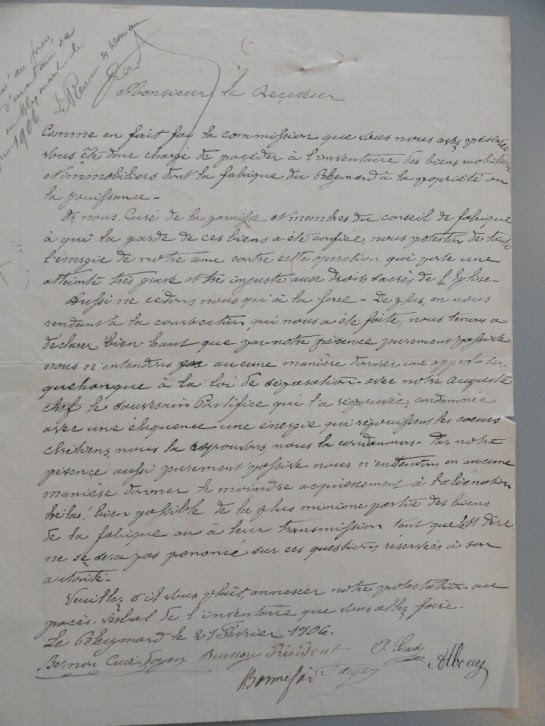 au proces
d'inventaire de
Bleymard le
1906
Le Receveur
Monsieur le Receveur
Comme en fait foi la commission que vous nous avez présentée
vous êtes donc chargé de procéder à l'inventaire des biens mobiliers
et immobiliers dont la fabrique du Bleymard à la propriété ou
la jouissance.
Or nous Curé de la paroisse et membres du conseil de fabrique
à qui la garde de ces biens a été confiée, nous protestons de toute
l'énergie de notre âme contre cette opération qui porte une
atteinte très grave et très injuste aux droits sacrés de l'Eglise.
Aussi ne cédons nous qu'à la force. De plus, en nous
rendant à la convocation qui nous a été faite, nous tenons à
déclarer bien haut que par notre présence purement passive
nous n'entendons en aucune manière donner une approbation
quelconque à la loi de séparation. avec notre auguste
chef le souverain Pontife qui l'a réprouvée, condamnée
avec une éloquence une énergie qui réjouissent les coeurs
chrétiens, nous la réprouvons, nous la condamnons. Par notre
présence aussi purement passive nous n'entendons en aucune
manière donner le moindre acquiescement à l'aliénation
hélas! bien possible de la plus minime partie des biens
de la fabrique ou à leur transmission tant que
ne se sera pas prononcé sur ces questions réservées à son
autorité.
Veuillez s'il vous plaît, annexer notre protestation au
procès-verbal de l'inventaire que vous allez faire.
Le Bleymard le 21 Février 1906.
Curé Doyen Président
Bonnefoi Albouy